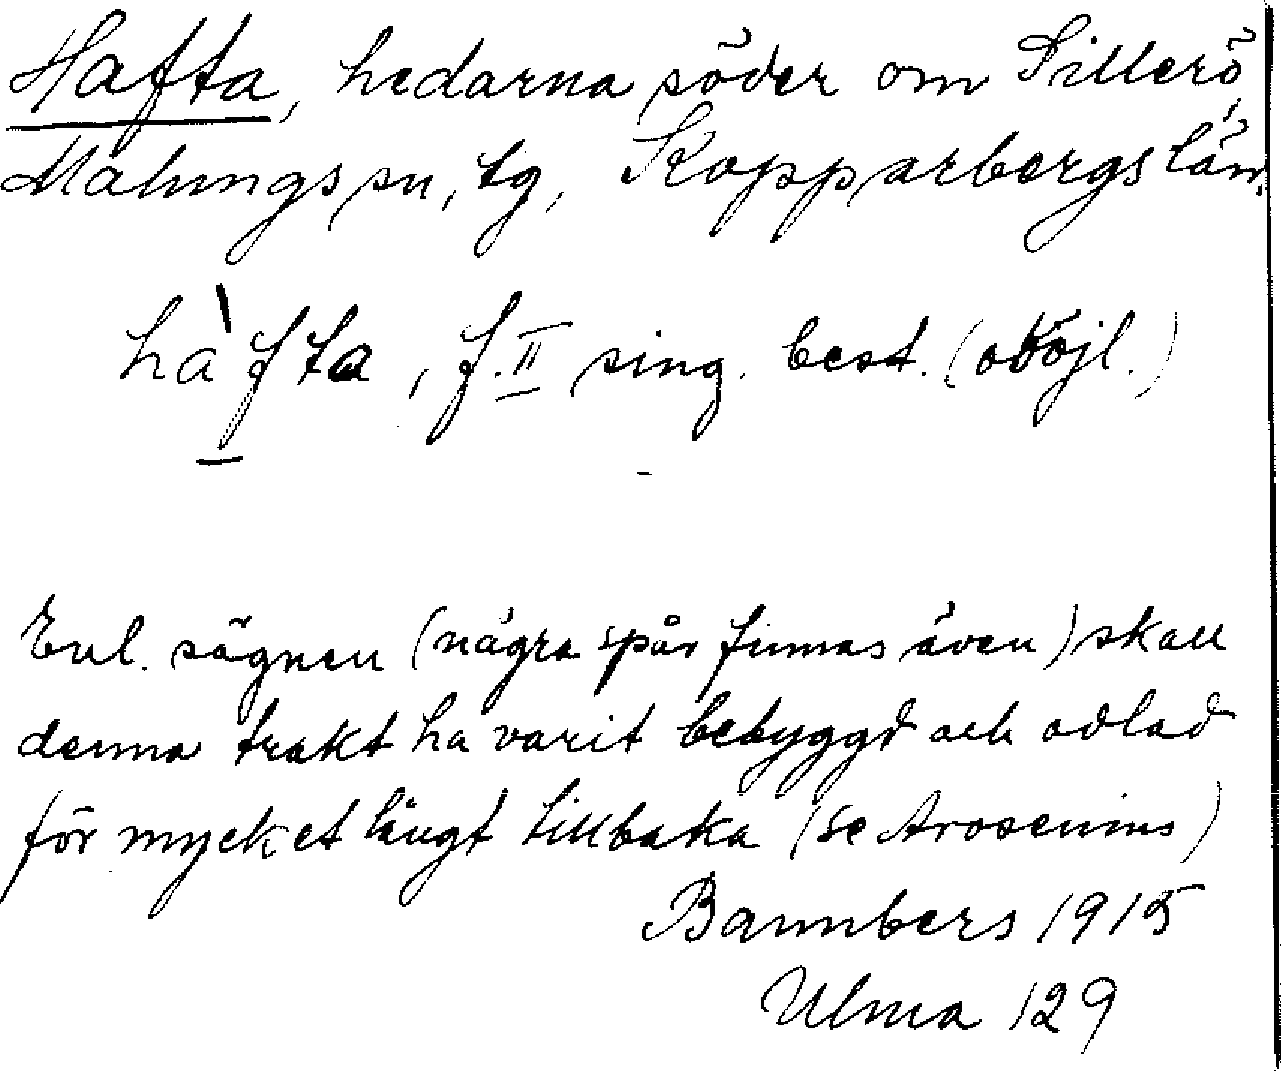 Hafta, hedarna söder om Tillerö,
Malungs sn, tg, Kopparbergs län.
hàfta, f. II sing. best. (oböjl.)
Enl. sägnen (några spår finnas även) skall
denna trakt ha varit bebyggd och odlad
för mycket långt tillbaka (se Arosenius)
Bannbers 1915
Ulma 129